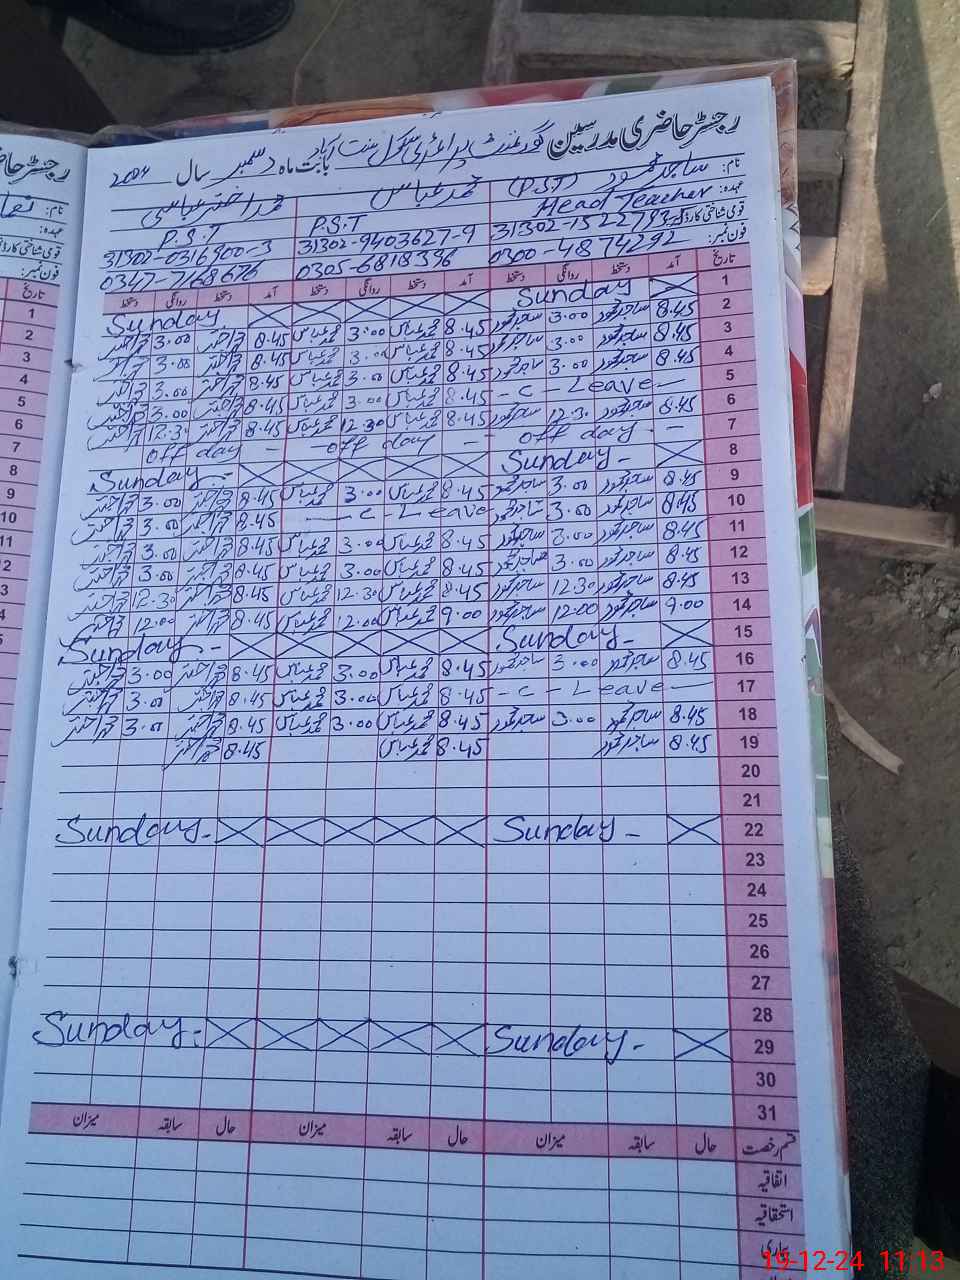 رجسٹر حاضری مدرسین گورنمنٹ پرائمری سکول بابت ماہ دسمبر سال 2024
نام: ساجد محمود (P.S.T) محمد عباس محمد اختر عباسی
عہدہ: Head Teacher P.S.T P.S.T
قومی شناختی کارڈ 31302-9403627-9 31302-0316900-3
فون نمبر: 0300-4874292 0305-6818396 0347-7168676
تاریخ آمد دستخط روانگی دستخط آمد دستخط روانگی دستخط آمد دستخط روانگی دستخط
1 Sunday Sunday
2 8.45 ساجد محمود 3.00 ساجد محمود 8.45 محمد عباس 3.00 محمد عباس 8.45 محمد اختر 3.00 محمد اختر
3 8.45 ساجد محمود 3.00 ساجد محمود 8.45 محمد عباس 3.00 محمد عباس 8.45 محمد اختر 3.00 محمد اختر
4 8.45 ساجد محمود 3.00 ساجد محمود 8.45 محمد عباس 3.00 محمد عباس 8.45 محمد اختر 3.00 محمد اختر
5 - C - Leave - 8.45 محمد عباس 3.00 محمد عباس 8.45 محمد اختر 3.00 محمد اختر
6 8.45 ساجد محمود 12.30 ساجد محمود 8.45 محمد عباس 12.30 محمد عباس 8.45 محمد اختر 12.30 محمد اختر
7 off day - - off day - off day -
8 Sunday - Sunday -
9 8.45 ساجد محمود 3.00 ساجد محمود 8.45 محمد عباس 3.00 محمد عباس 8.45 محمد اختر 3.00 محمد اختر
10 8.45 ساجد محمود 3.00 ساجد محمود - C - Leave 8.45 محمد اختر 3.00 محمد اختر
11 8.45 ساجد محمود 3.00 ساجد محمود 8.45 محمد عباس 3.00 محمد عباس 8.45 محمد اختر 3.00 محمد اختر
12 8.45 ساجد محمود 3.00 ساجد محمود 8.45 محمد عباس 3.00 محمد عباس 8.45 محمد اختر 3.00 محمد اختر
13 8.45 ساجد محمود 12.30 ساجد محمود 8.45 محمد عباس 12.30 محمد عباس 8.45 محمد اختر 12.30 محمد اختر
14 9.00 ساجد محمود 12.00 ساجد محمود 9.00 محمد عباس 12.00 محمد عباس 8.45 محمد اختر 12.00 محمد اختر
15 Sunday - Sunday -
16 8.45 ساجد محمود 3.00 ساجد محمود 8.45 محمد عباس 3.00 محمد عباس 8.45 محمد اختر 3.00 محمد اختر
17 - C - Leave - 8.45 محمد عباس 3.00 محمد عباس 8.45 محمد اختر 3.00 محمد اختر
18 8.45 ساجد محمود 3.00 ساجد محمود 8.45 محمد عباس 3.00 محمد عباس 8.45 محمد اختر 3.00 محمد اختر
19 8.45 ساجد محمود 8.45 محمد عباس 8.45 محمد اختر
20
21
22 Sunday - Sunday -
23
24
25
26
27
28
29 Sunday - Sunday -
30
31
قسم رخصت حال سابقہ میزان حال سابقہ میزان حال سابقہ میزان
اتفاقیہ
استحقاقیہ
بیماری
19-12-24 11:13